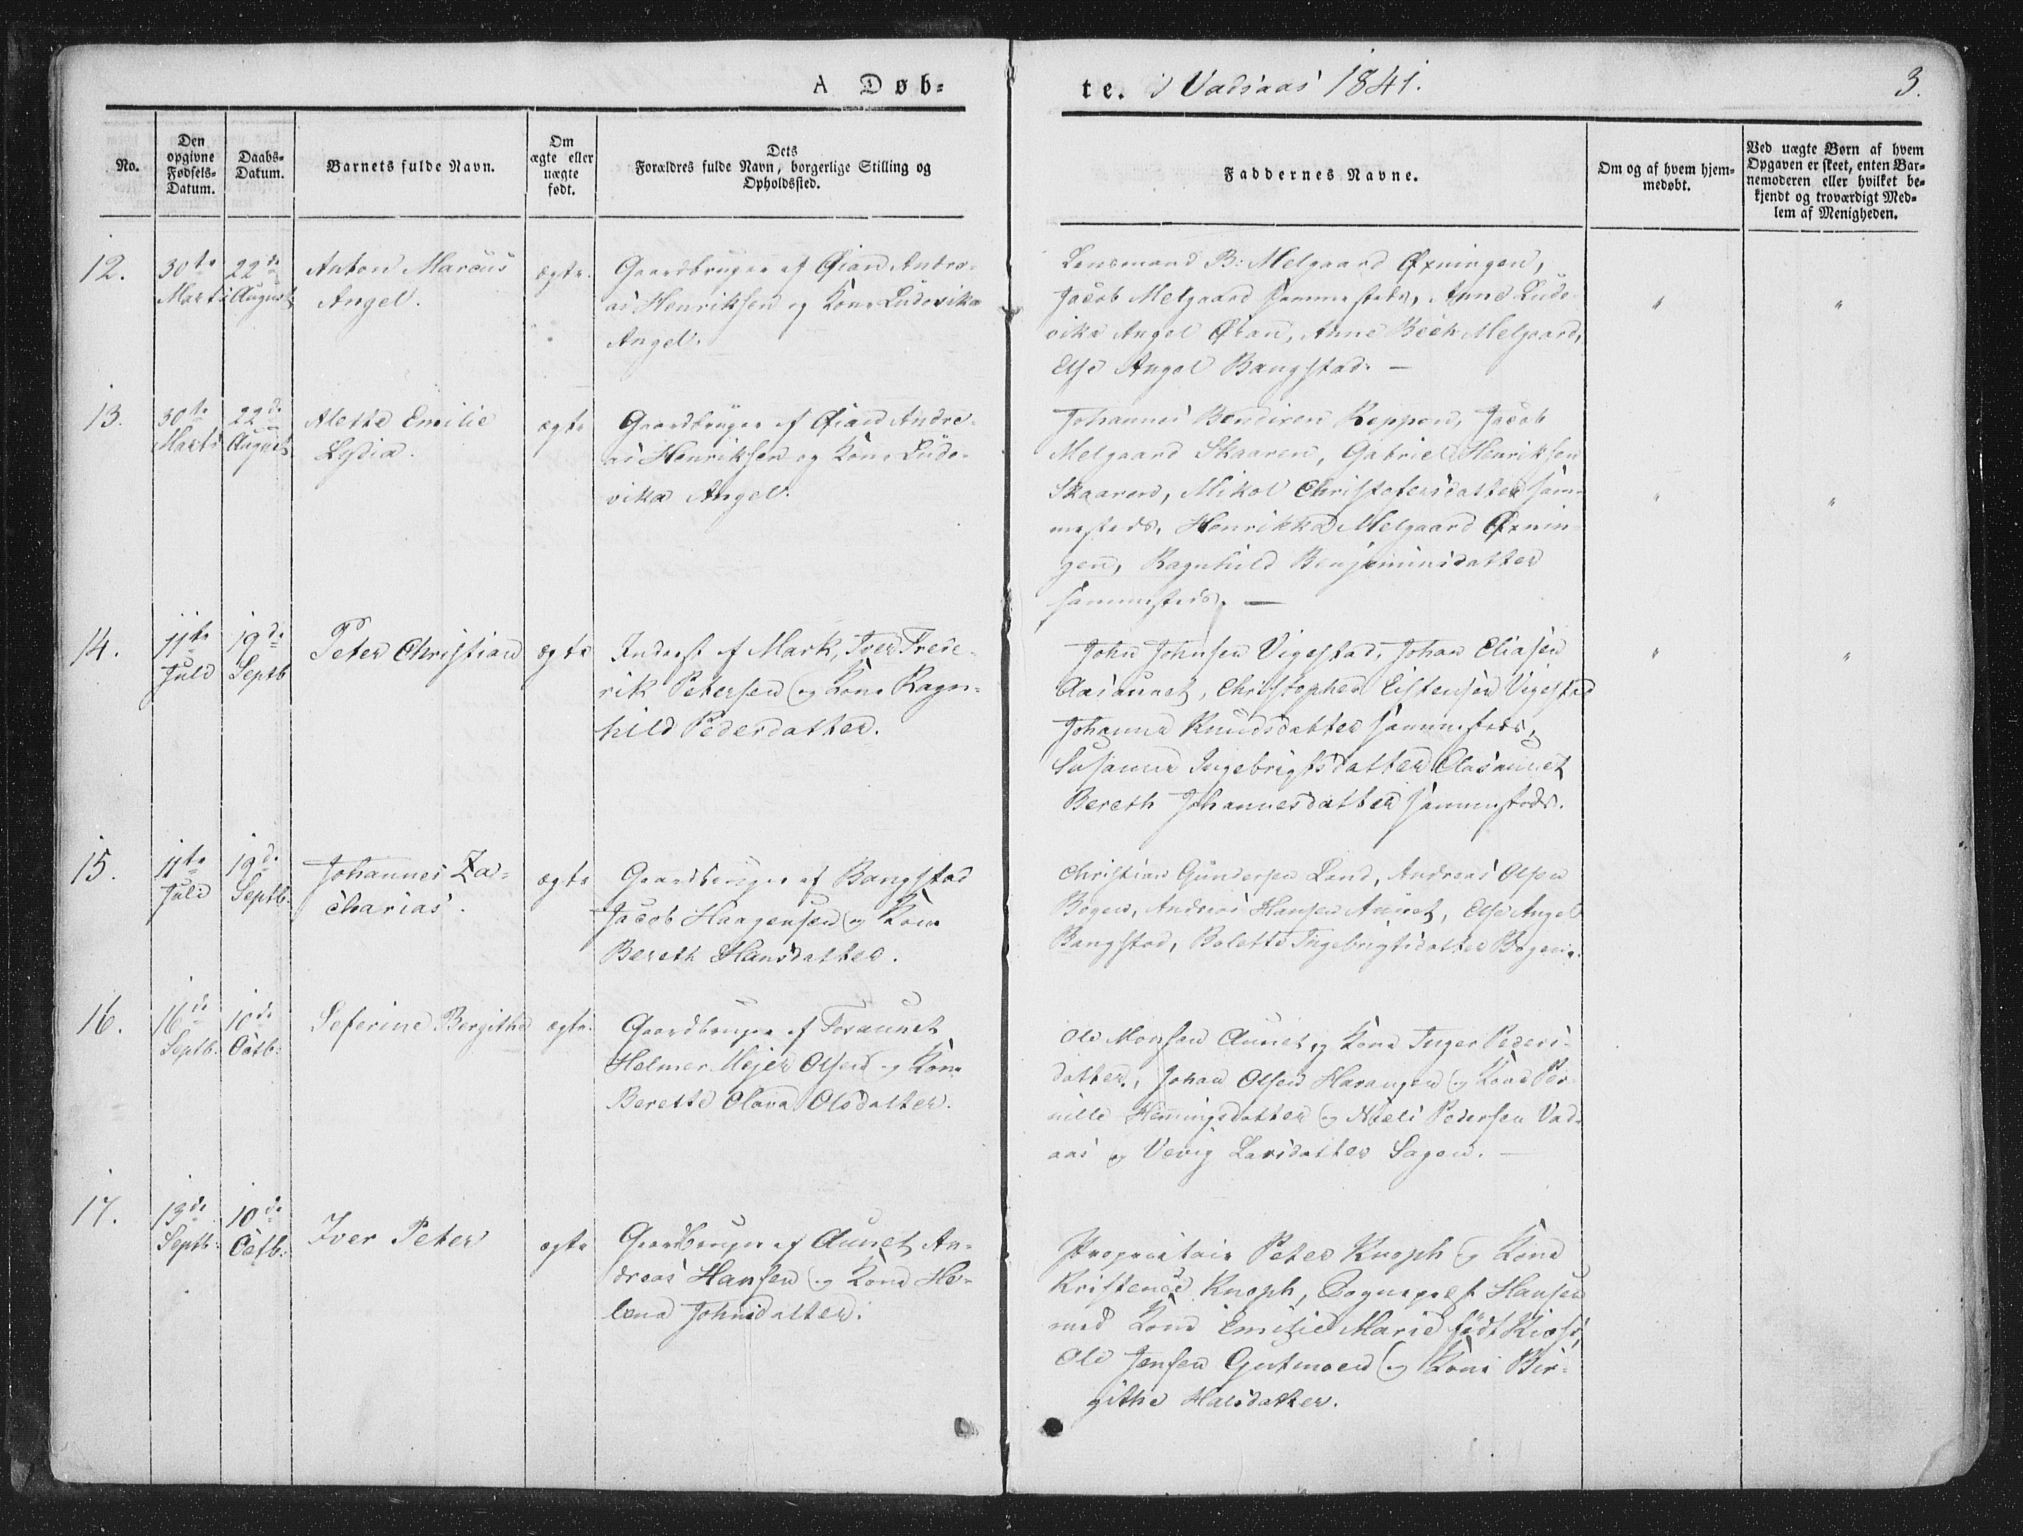 A Døb-
te. i Vadsaas 1841.
3.
No.
Den opgivne Fødsels-Datum.
Daabs-Datum.
Barnets fulde Navn.
Om ægte eller uægte født.
Dets
Forældres fulde Navn, borgerlige Stilling og
Opholdssted.
Faddernes Navne.
Om og af hvem hjem-
medøbt.
Ved uægte Børn af hvem
Opgaven er skeet, enten Bar-
nemoderen eller hvilket be-
kjendt og troværdigt Med-
lem af Menigheden.
12.
30te
Marts
22de
August
Anton Marcus
Angel.
ægte.
Gaardbruger af Øian Andre-
as Henriksen og Kone Ludovika
Angel.
Lensmand B: Melgaard Øxningen,
Jacob Melgaard sammesteds, Anne Ludo-
vika Angel Øian, Anne Beck Melgaard,
Else Angel Bangstad. —
"
"
13.
30te
Marts
22de
August
Alette Emilie
Lydia.
ægte
Gaardbruger af Øian Andre-
as Henriksen og Kone Ludo-
vika Angel.
Johannes Bendixen Keppen, Jacob
Melgaard Skaaren, Gabriel Henriksen
Skaaren, Mikol Christofersdatter sam-
mesteds, Henrikka Melgaard Øxnin-
gen, Ragnhild Benjaminsdatter
sammesteds. —
"
"
14.
11te
Juli
19de
Septb
Peter Christian
ægte
Inderst af Mark, Iver Frede-
rik Petersen og Kone Ragn-
hild Pedersdatter.
John Johnsen Vigestad, Johan Eliasen
Aasaunet, Christopher Eistensen Vigestad
Johanna Knudsdatter sammesteds,
Susanna Ingebrigtsdatter Aasaunet
Bereth Johannesdatter sammesteds.
"
"
15.
11te
Juli
19de
Septb.
Johannes Za-
charias.
ægte
Gaardbruger af Bangstad
Jacob Haagensen og Kone
Bereth Hansdatter.
Christian Gundersen Lund, Andreas Olsen
Bogen, Andreas Hansen Aunet, Else Angel
Bangstad, Bolette Ingebrigtsdatter Bogen.
16.
16de
Septb.
10de
Octb:
Seferine Bergithe
ægte.
Gaardbruger af Fosaunet
Helmer Mejer Olsen og Kone
Berette Olava Olsdatter.
Ole Monsen Aunet og Kone Inger Peders-
datter, Johan Olsen Harangen og Kone Per-
nille Hemmingsdatter og Niels Pedersen Vads-
aas og Vevig Larsdatter Sagen. —
17.
13de
Septb.
10de
Octb:
Iver Peter
ægte
Gaardbruger af Aunet An-
dreas Hansen og Kone He-
lena Johnsdatter.
Proprietair Peter Knoph og Kone
Kristence Knoph, Sognepræst Hansen
med Kone Emilie Marie født
Ole Jensen og Kone Bir-
githe Halsdatter.